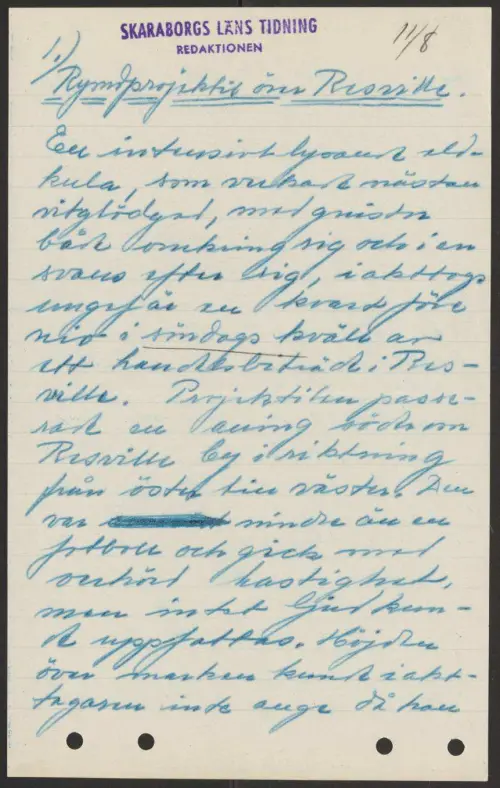 SKARABORGS LÄNS TIDNING
REDAKTIONEN
11/8
1.)
Rymdprojektil över Resville.
En intensivt lysande eld-
kula, som verkade nästan
vitglödgad, med gnistor
både omkring sig och i en
svans efter sig, iakttogs
ungefär en kvart före
nio i söndags kväll av
ett handelsbiträde i Res-
ville. Projektilen passe-
rade en aning söder om
Resville by i riktning
från öster till väster. Den
var mindre än en
fotboll och gick med
oerhörd hastighet,
men intet ljud kun-
de uppfattas. Höjden
över marken kunde iakt-
tagaren inte ange då han